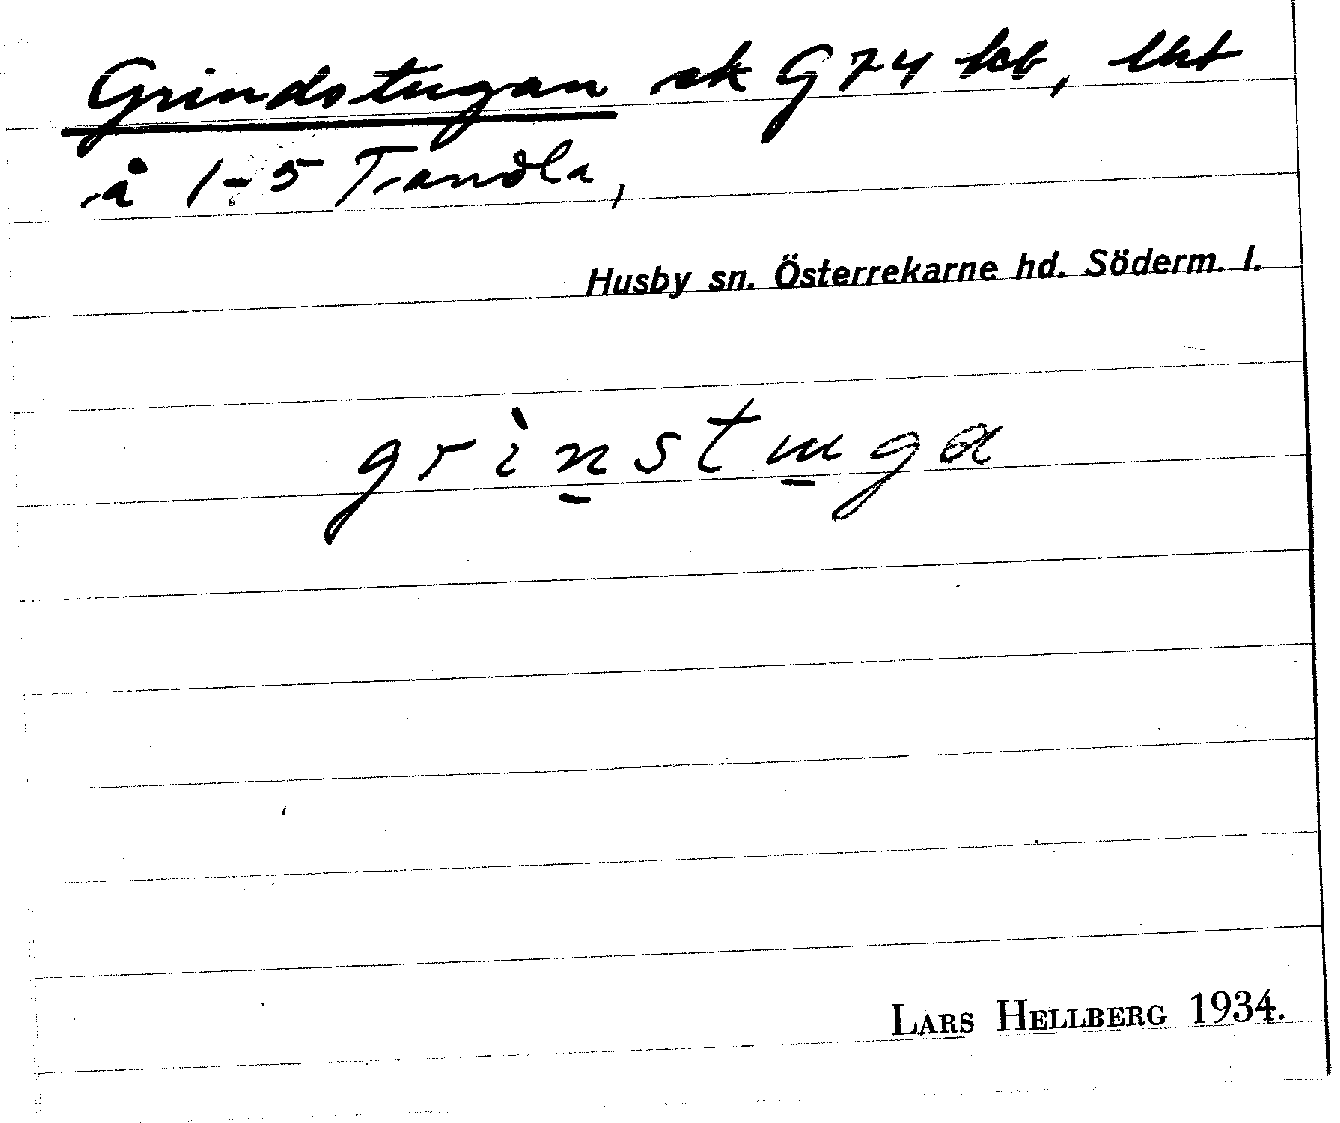 Grindstugan ek G74 bb, lht
å 1-5 Trandla,
Husby sn. Österrekarne hd. Söderm. l.
grìnstuga
LARS HELLBERG 1934.